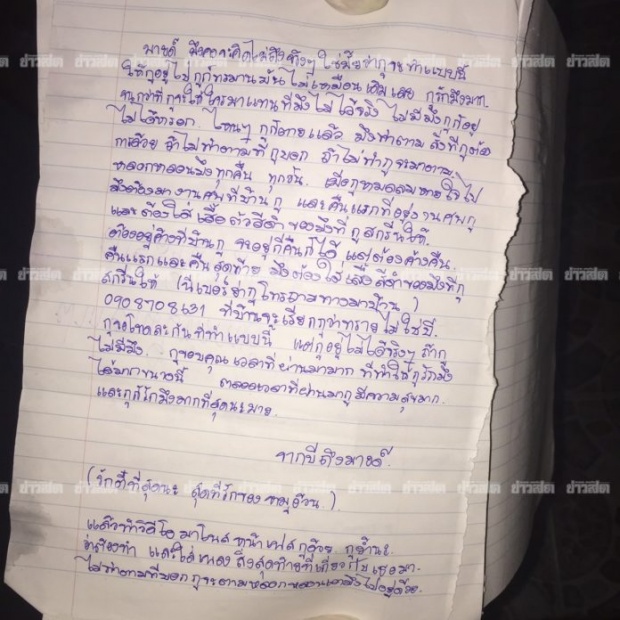 มายด์ มึงคงจะคิดไม่ถึงจริงๆ ใช่มั้ยว่ากูจะทำแบบนี้
ให้กูอยู่ไปกูก็ทรมานมันไม่เหมือนเดิมเลย กูรักมึงมาก
จนกูหาที่จะใช้ใครมาแทนที่มึงไม่ได้จริง ไม่มีมึงกูก็อยู่
ไม่ได้หรอก ไหนๆ กูก็ตายแล้ว มึงทำตาม สิ่งที่กูต้อง
การด้วย ถ้าไม่ทำตามที่กูบอก ถ้าไม่ทำกูจะมาตาม
หลอกหลอนมึงทุกคืน ทุกวัน เมื่อกูหมดลมหายใจไป
มึงต้องมางานศพที่บ้านกู และคืนแรกที่อยู่งานศพกู
และต้องใส่เสื้อตัวสีดำของมึงที่กูสกรีนให้
ต้องอยู่ค้างที่บ้านกู จะอยู่กี่คืนก็ได้ แต่ต้องค้างคืน
คืนแรกและคืนสุดท้าย มึงต้องใส่เสื้อสีดำของมึงที่กู
สกรีนให้ (นี่เบอร์ย่ากูโทรถามทางมาบ้าน)
0908708631 ที่บ้านจะเรียกกูว่าทราย ไม่ใช่บี
กูขอโทษละกันที่ทำแบบนี้ แต่กูอยู่ไม่ได้จริงๆ ถ้ากู
ไม่มีมึง กูขอบคุณเวลาที่ผ่านมามาก ที่ทำให้กูรักมึง
ได้มากขนาดนี้ ตลอดเวลาที่ผ่านมากูมีความสุขมาก
และกูก็รักมึงมากที่สุดนะมายด์
จากบีถึงมายด์
(รักที่สุดนะ สุดที่รักของหมูอ้วน)
แล้วทำวิดีโอ มาโพสหน้าเฟสกูด้วย กูย้ำนะ
ว่าต้องทำ และใส่เพลง ถึงสุดท้ายที่เกี่ยวกับเธอมา
ไม่ทำตามที่บอก กูจะตามหลอกหลอนเอามึงไปอยู่ด้วย
ข่าวสด ข่าวสด ข่าวสด ข่าวสด